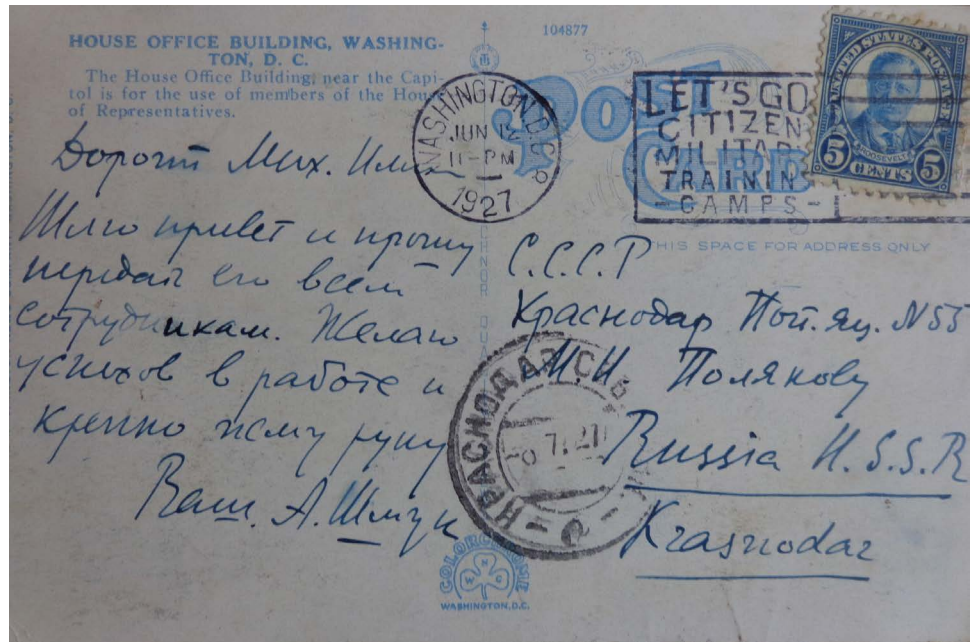 HOUSE OFFICE BUILDING, WASHING-
TON, D. C.
The House Office Building, near the Capi-
tol is for the use of members of the House
of Representatives.
104877
WASHINGTON, D.C.
JUN 12
11-PM
1927
POST
CARD
LET'S GO
CITIZENS
MILITARY
TRAINING
-CAMPS-
UNITED STATES POSTAGE
ROOSEVELT
5 CENTS 5
THIS SPACE FOR ADDRESS ONLY
Дорогой Мих. Ильич
Шлю привет и прошу
передать его всем
сотрудникам. Желаю
успехов в работе и
крепко жму руку
Ваш. А. Шмук
С.С.С.Р
Краснодар Поч. ящ. №55
М.И Полякову
Russia U.S.S.R
Krasnodar
КРАСНОДАР
7.27
COLORCHROME
WASHINGTON, D.C.